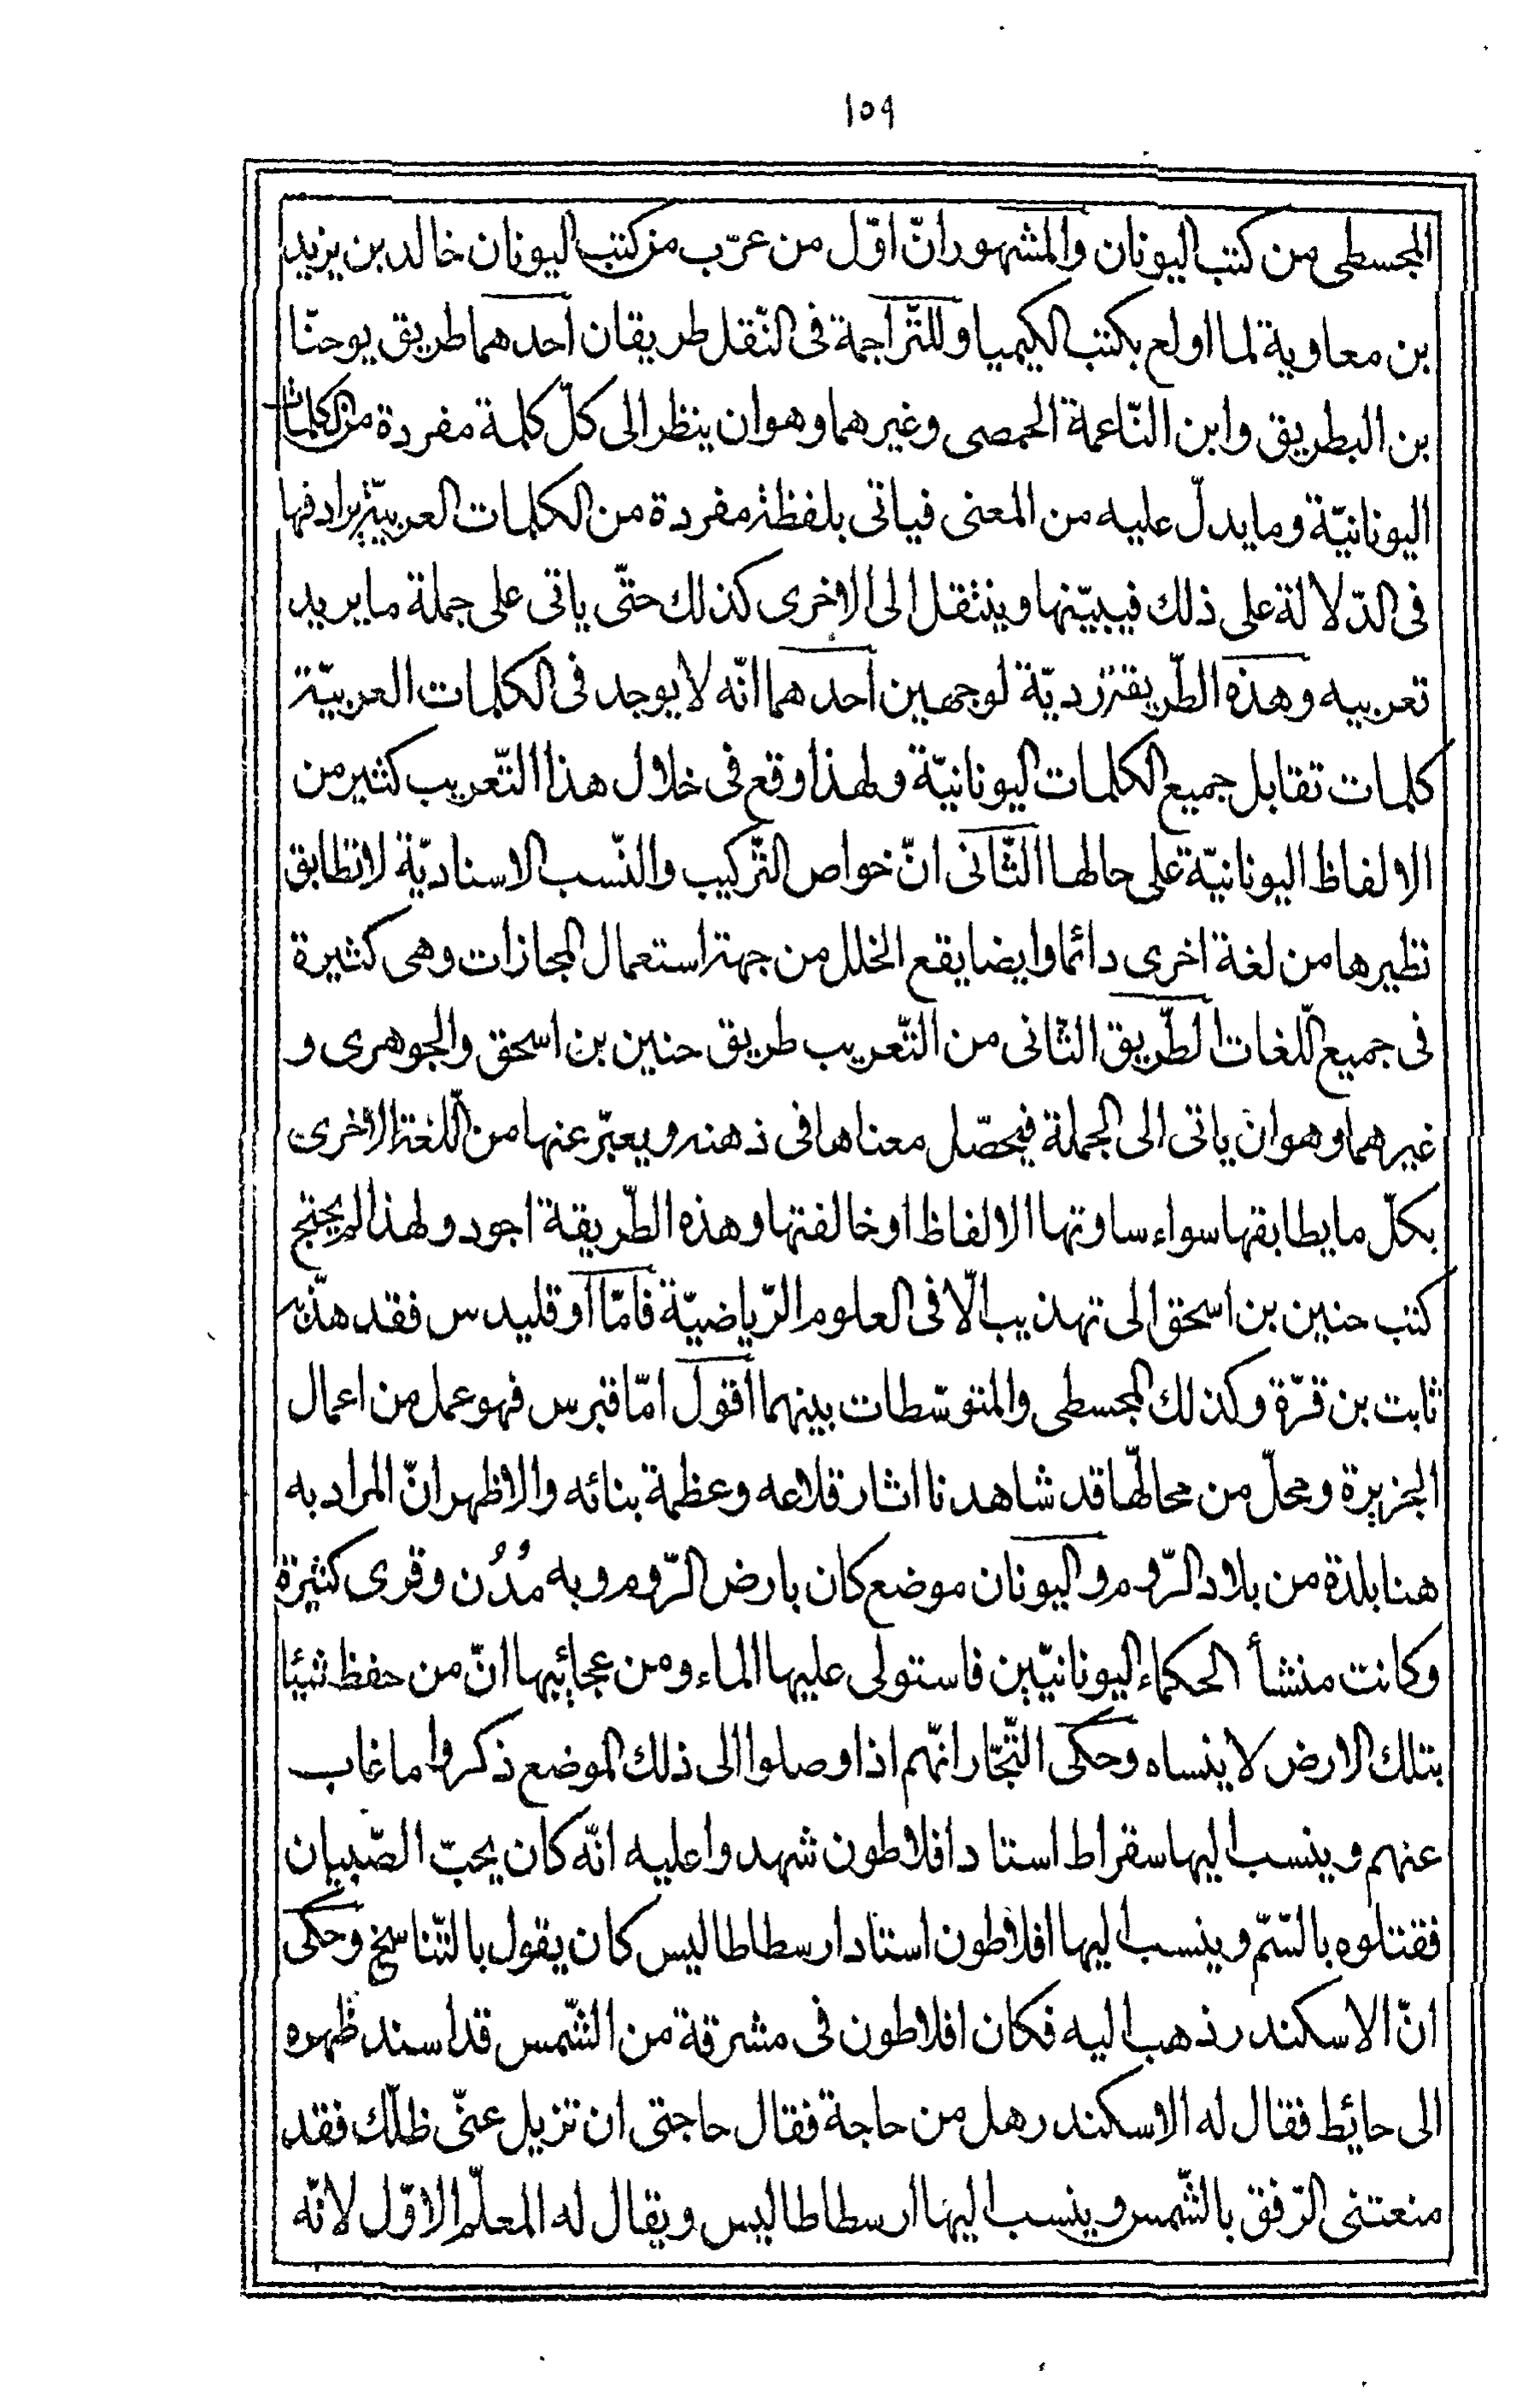 ١٥٩
المجسطى من كتب اليونان والمشهور انّ اوّل من عرّب من كتب اليونان خالد بن يزيد
بن معاوية لما اولع بكتب الكيميا وللتّراجمة فى النّقل طريقان احدهما طريق يوحنّا
بن البطريق وابن النّاعمة الحمصى وغيرهما وهو ان ينظر الى كلّ كلمة مفردة من الكلمات
اليونانيّة وما يدلّ عليه من المعنى فياتى بلفظة مفردة من الكلمات العربيّة يرادفها
فى الدّلالة على ذلك فيبيّنها وينتقل الى الاخرى كذلك حتّى ياتى على جملة ما يريد
تعريبه وهذه الطّريقة رديّة لوجهين احدهما انّه لا يوجد فى الكلمات العربيّة
كلمات تقابل جميع الكلمات اليونانيّة ولهذا وقع فى خلال هذا التّعريب كثير من
الالفاظ اليونانيّة على حالها الثّانى انّ خواص التّركيب والنّسب الاسناديّة لا تطابق
نظيرها من لغة اخرى دائما وايضا يقع الخلل من جهة استعمال المجازات وهى كثيرة
فى جميع اللّغات الطّريق الثّانى من التّعريب طريق حنين بن اسحق والجوهرى و
غيرهما وهو ان ياتى الى الجملة فيحصّل معناها فى ذهنه ويعبّر عنها من اللّغة الاخرى
بكلّ ما يطابقها سواء ساوتها الالفاظ او خالفتها وهذه الطّريقة اجود ولهذا لم يحتج
كتب حنين بن اسحق الى تهذيب الّا فى العلوم الرّياضيّة فامّا اوقليدس فقد هذّبه
ثابت بن قرّة وكذلك المجسطى والمتوسّطات بينهما اقول امّا قبرس فهو عمل من اعمال
الجزيرة ومحلّ من محالّها قد شاهدنا اثار قلاعه وعظمة بنائه والاظهر انّ المراد به
هنا بلدة من بلاد الرّوم واليونان موضع كان بارض الرّوم وبه مُدُن وقرى كثيرة
وكانت منشأ الحكماء اليونانيّين فاستولى عليها الماء ومن عجائبها انّ من حفظ شيئا
بتلك الارض لا ينساه وحكى التّجّار انّهم اذا وصلوا الى ذلك الموضع ذكروا ما غاب
عنهم وينسب اليها سقراط استاد افلاطون شهدوا عليه انّه كان يحبّ الصّبيان
فقتلوه بالسّمّ وينسب اليها افلاطون استاد ارسطاطاليس كان يقول بالتّناسخ وحكى
انّ الاسكندر ذهب اليه فكان افلاطون فى مشرقة من الشّمس قد اسند ظهره
الى حائط فقال له الاسكندر هل من حاجة فقال حاجتى ان تزيل عنّى ظلّك فقد
منعتنى الرّفق بالشّمس وينسب اليها ارسطاطاليس ويقال له المعلّم الاوّل لانّه